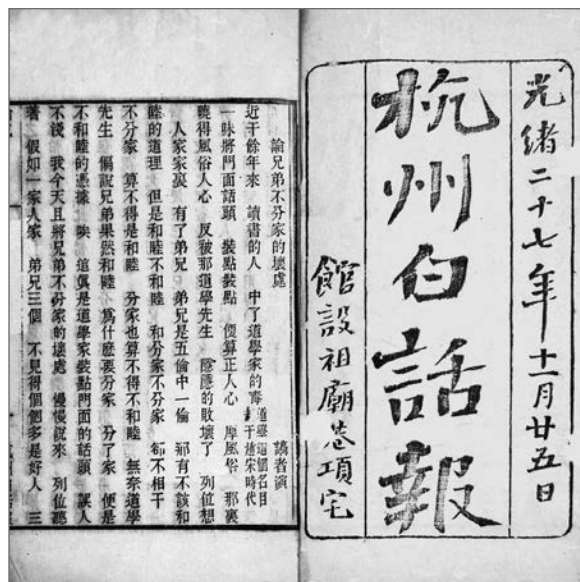 光緒二十七年十一月廿五日
杭州白話報
館設祖廟巷項宅
論兄弟不分家的壞處
近千餘年來 讀書的人 中了道學家的毒 道學這個名目 起于趙宋時代
一味將門面話頭 裝點裝點 便算正人心 厚風俗 那裏
曉得風俗人心 反被那道學先生 隱隱的敗壞了 列位想
人家家裏 有了弟兄 弟兄是五倫中一倫 那有不該和
睦的道理 但是和睦不和睦 和分家不分家 都不相干
不分家 算不得是和睦 分家也算不得不和睦 無奈道學
先生 偏說兄弟果然和睦 爲什麽要分家 分了家 便是
不和睦的憑據 唉 這眞是道學家裝點門面的話頭 誤人
不淺 我今天且將兄弟不分家的壞處 慢慢說來 列位聽
著 假如一家人家 弟兄三個 不見得個個多是好人 三